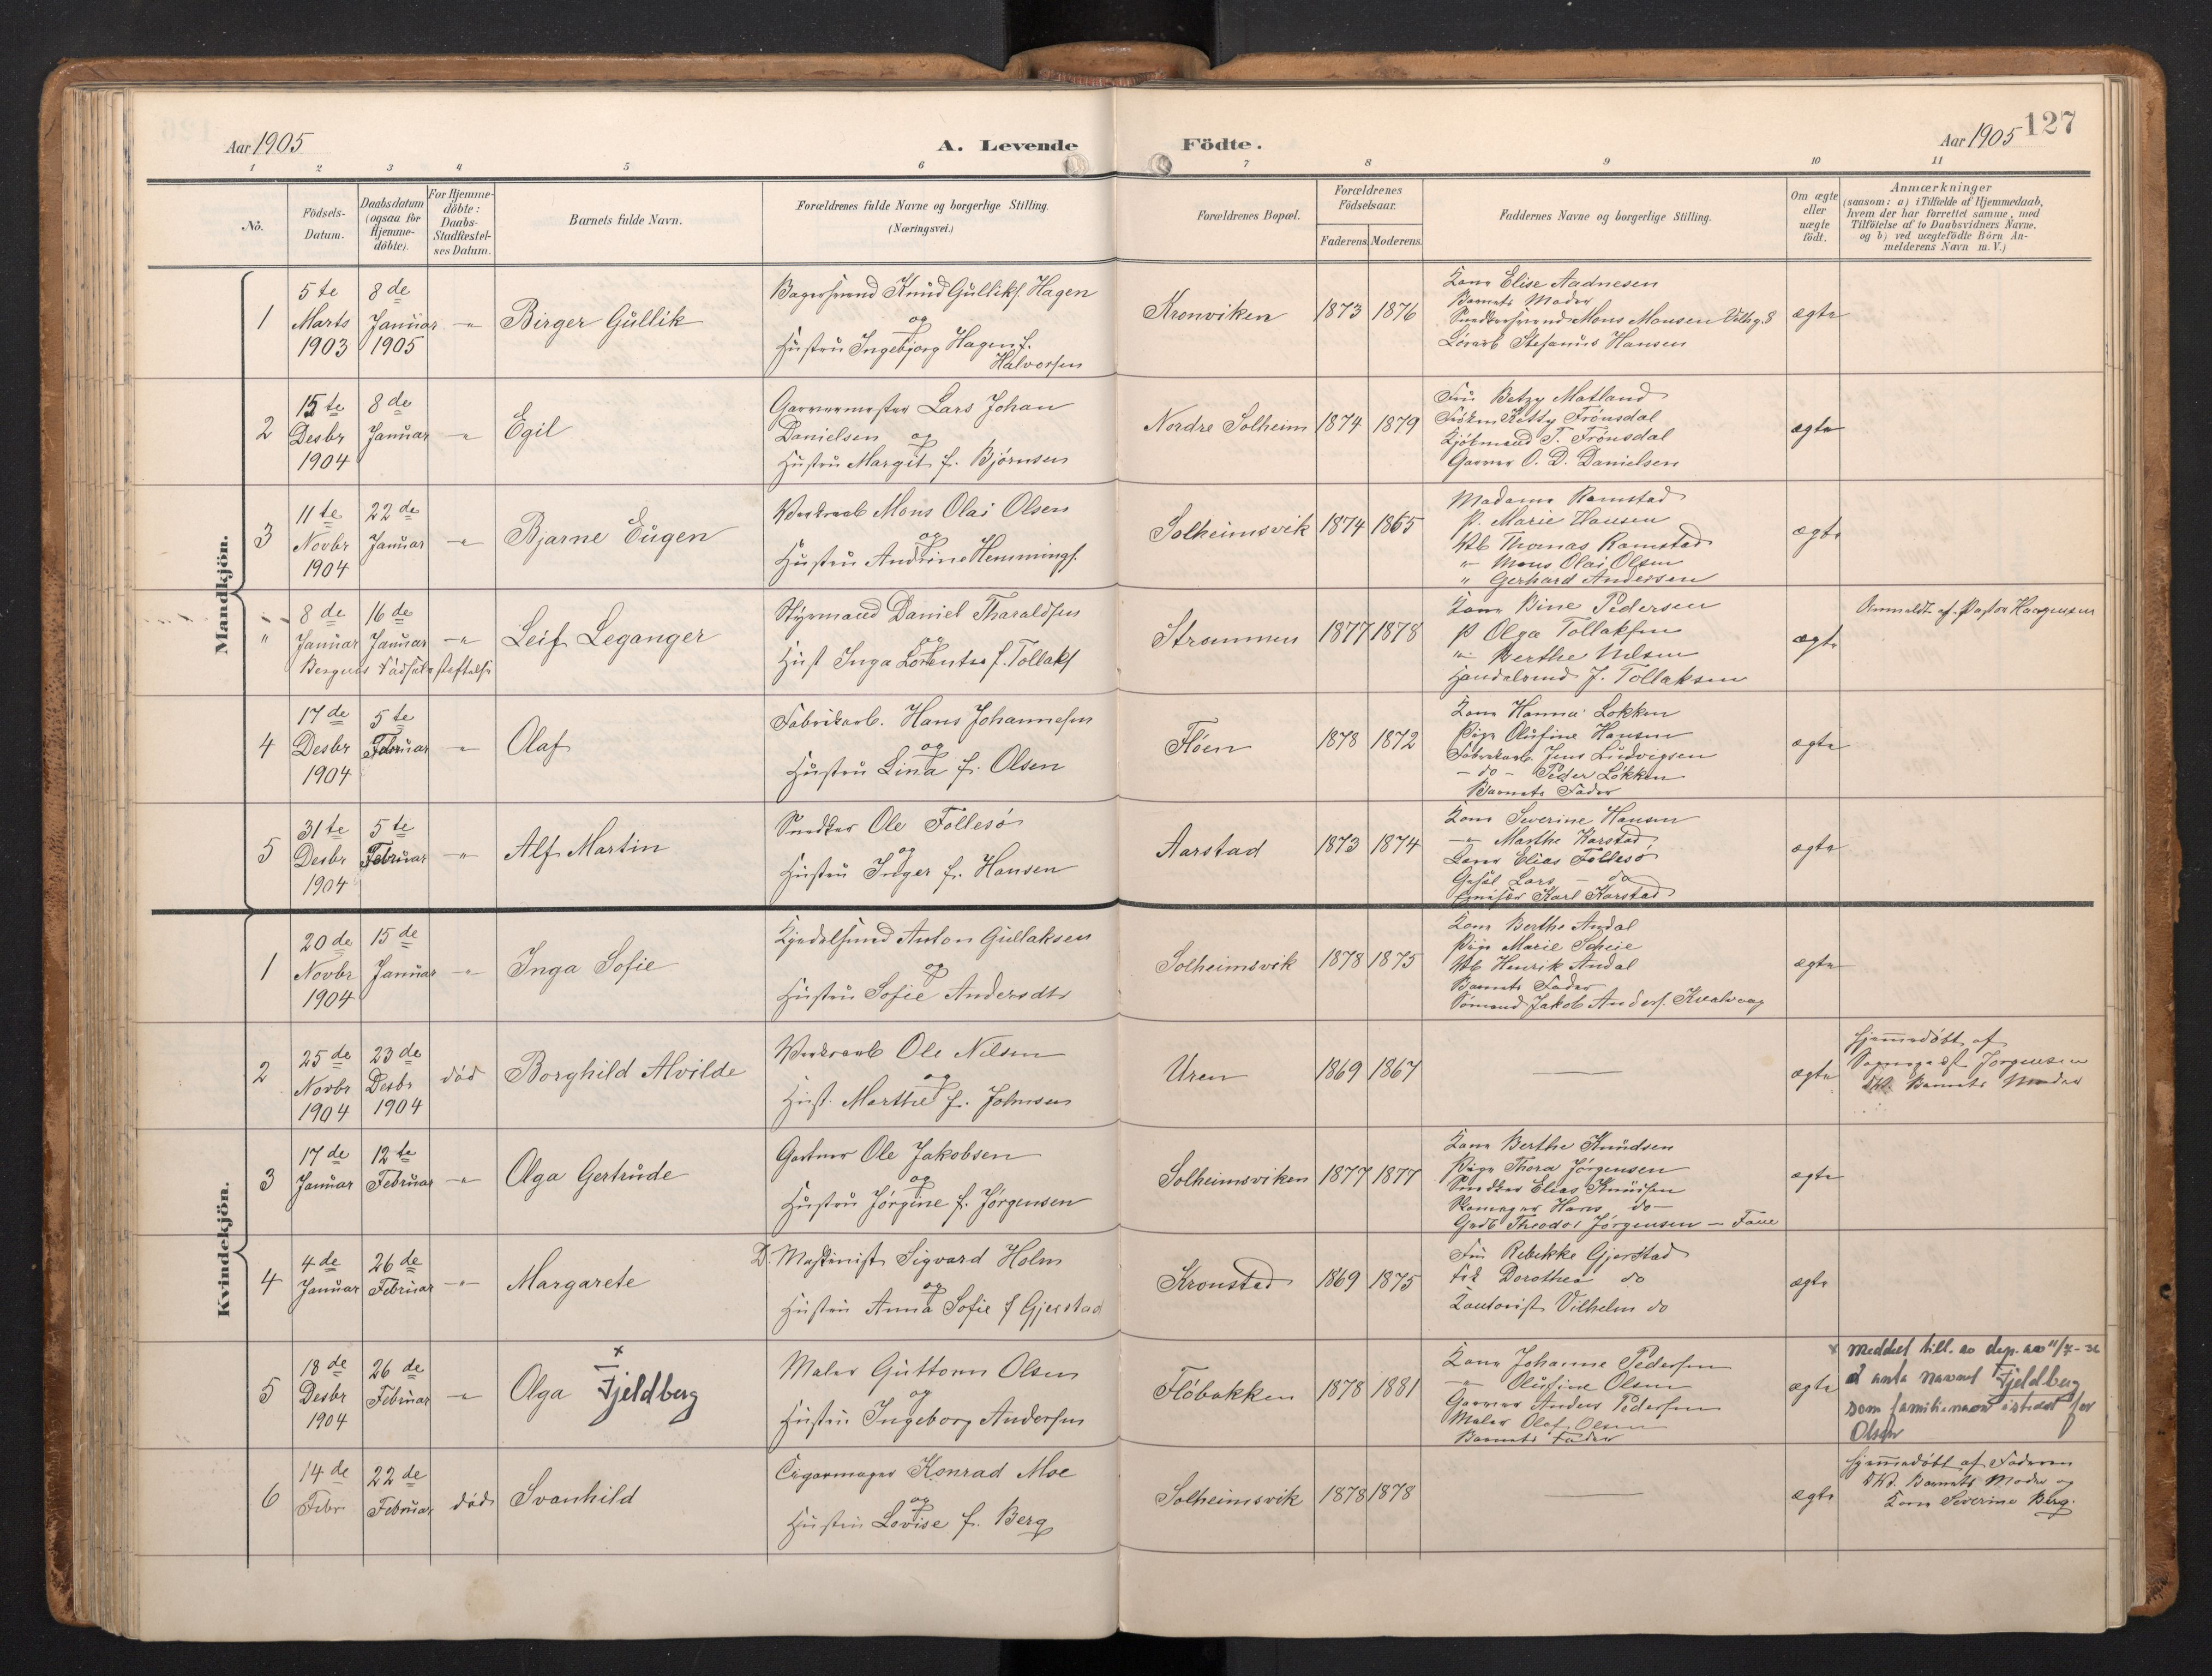 Aar 1905
A. Levende Födte.
Aar 1905
127
1 2 3 4 5 6 7 8 9 10 11
No.
Födsels-
Datum.
Daabsdatum
(ogsaa for
Hjemme-
döbte).
For Hjemme-
döbte:
Daabs-
Stadfæstel-
ses Datum.
Barnets fulde Navn.
Forældrenes fulde Navne og borgerlige Stilling.
(Næringsvei.)
Forældrenes Bopæl.
Forældrenes
Födselsaar.
Faderens.
Moderens.
Faddernes Navne og borgerlige Stilling.
Om ægte
eller
uægte
födt.
Anmærkninger
(saasom: a) i Tilfælde af Hjemmedaab,
hvem der har forrettet samme, med
Tilföielse af to Daabsvidners Navne,
og b) ved uægtefödte Börn An-
melderens Navn m. V.)
Mandkjön.
1
5te
Marts
1903
8de
Januar
1905
Birger Gullik
Knud Gulliks. Hagen
og
Hustru Ingebjorg Hagen f.
Halvorsen
Kronviken
1873
1876
Kone Elise Aadnesen
Barnets Moder
Mons Monsen
Stefanus Hansen
ægte
2
15te
Desbr
1904
8de
Januar
Egil
Garvermester Lars Johan
Danielsen og
Hustru Margit f. Bjørnsen
Nordre Solheim
1874
1879
Fru Betzy Matland
Frøken Kitty Frønsdal
Kjøbmand T. Frønsdal
Garver O. D. Danielsen
ægte
3
11te
Novbr
1904
22de
Januar
Bjarne Eugen
Mons Olai Olsen
og
Hustru Andrine Hemmings.
Solheimsvik
1874
1865
Madame Ramstad
P. Marie Hansen
Thomas Ramstad
" Mons Olai Olsen
" Gerhard Andersen
ægte
"
8de
Januar
16de
Januar
Bergens Fødselsstiftelse
Leif Leganger
Styrmand Daniel Tharaldsen
og
Hust Inga Lorentse f. Tollaks
Strømmen
1877
1878
Kone Bine Pedersen
P Olga Tollaksen
" Berthe Nilsen
J. Tollaksen
ægte
Anmeldt af Pastor Haagensen
4
17de
Desbr
1904
5te
Februar
Olaf
Fabrikarb. Hans Johannesen
og
Hustru Lina f. Olsen
Fløen
1878
1872
Kone Hanna Løkken
Pige Olufine Hansen
Fabrikarb. Jens Ludvigsen
- do - Peder Løkken
Barnets Fader
ægte
5
31te
Desbr
1904
5te
Februar
Alf Martin
Snedker Ole Follesø
og
Hustru Inger f. Hansen
Aarstad
1873
1874
Kone Severine Hansen
Marthe Karstad
Elias Follesø
Lars - do
Karl Karstad
ægte
Kvindekjön.
1
20de
Novbr
1904
15de
Januar
Inga Sofie
Anton Gullaksen
og
Hustru Sofie Andersdtr
Solheimsvik
1878
1875
Kone Berthe Andal
Pige Marie Scheie
Henrik Andal
Barnets Fader
Sømand Jakob Anders. Kvalvaag
ægte
2
25de
Novbr
1904
23de
Desbr
1904
død
Borghild Alvilde
Ole Nilsen
og
Hust. Marthe f. Johnsen
Uren
1869
1867
ægte
Hjemmedøbt af
Jørgensen
Barnets Moder
3
17de
Januar
12te
Februar
Olga Gertrude
Gartner Ole Jakobsen
og
Hustru Jørgine f. Jørgensen
Solheimsviken
1877
1877
Kone Berthe Knudsen
Pige Thora Jørgensen
Snedker Elias Knudsen
Skomager Hans do
Theodor Jørgensen - Fane
ægte
4
4de
Januar
26de
Februar
Margarete
D. Maskinist Sigvard Holm
og
Hustru Anna Sofie f Gjerstad
Kronstad
1869
1875
Fru Rebekke Gjerstad
Frk Dorothea do
Kontorist Vilhelm do
ægte
5
18de
Desbr
1904
26de
Februar
x
Olga Fjeldberg
Maler Guttorm Olsen
og
Hustru Ingeborg Andersen
Fløbakken
1878
1881
Kone Johanne Pedersen
Olufine Olsen
Garver Anders Pedersen
Maler Olaf Olsen
Barnets Fader
ægte
x meddel till. av dep. av
å anta navnet Fjeldberg
som familienavn istedet for
Olsen
6
14de
Febr
22de
Februar
død
Svanhild
Cigarmager Konrad Moe
og
Hustru Lovise f. Berg
Solheimsvik
1878
1878
ægte
Hjemmedøbt af Faderen
Barnets Moder og
Kone Severine Berg.